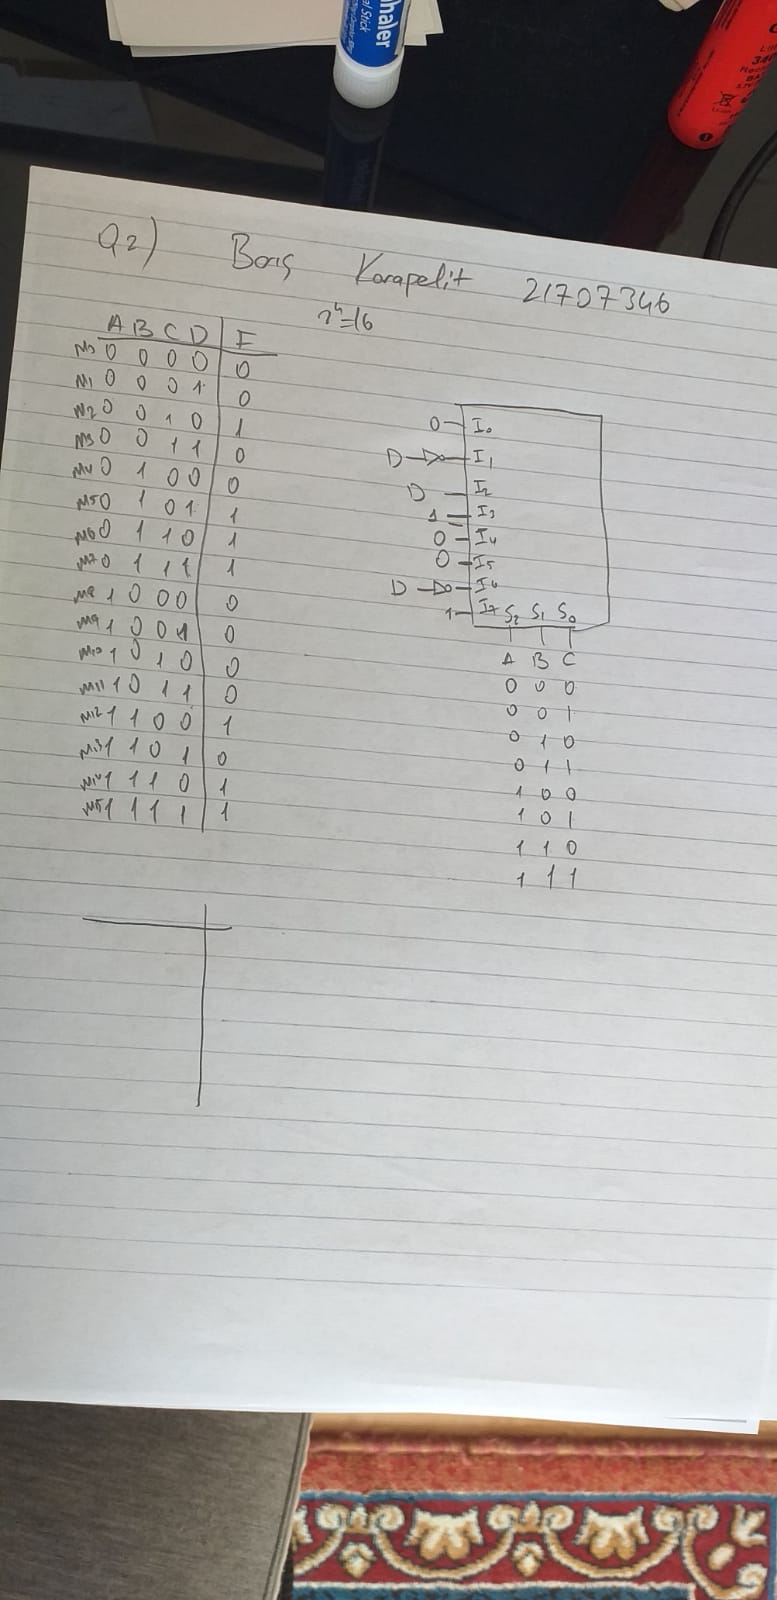 Q2) Barış Karapelit 21707346
2⁴=16
A B C D F
M0 0 0 0 0 0
M1 0 0 0 1 0
M2 0 0 1 0 1
M3 0 0 1 1 0
M4 0 1 0 0 0
M5 0 1 0 1 1
M6 0 1 1 0 1
M7 0 1 1 1 1
M8 1 0 0 0 0
M9 1 0 0 1 0
M10 1 0 1 0 0
M11 1 0 1 1 0
M12 1 1 0 0 1
M13 1 1 0 1 0
M14 1 1 1 0 1
M15 1 1 1 1 1
0 I0
D I1
D I2
1 I3
0 I4
0 I5
D I6
1 I7
S2 S1 S0
A B C
0 0 0
0 0 1
0 1 0
0 1 1
1 0 0
1 0 1
1 1 0
1 1 1
haler